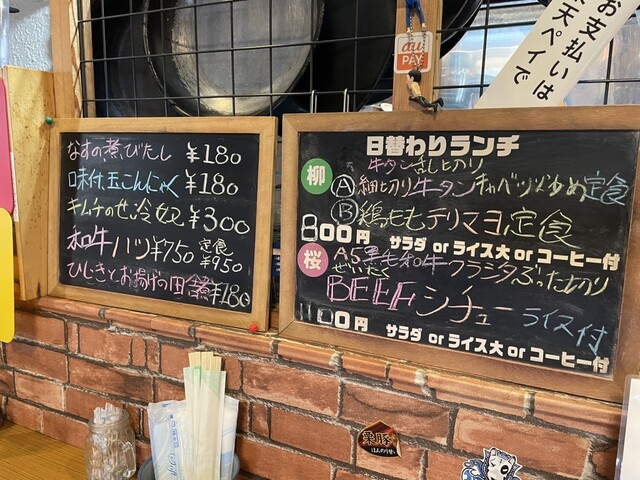 なすの煮びたし ¥180
味付玉こんにゃく ¥180
キムチのせ冷奴 ¥300
和牛ハツ ¥750 定食 ¥950
ひじきとお揚げの田舎煮 ¥180
日替わりランチ
牛タン乱切り
柳 Ⓐ 細切り牛タンキャベツ炒め定食
Ⓑ 鶏もも テリマヨ定食
800円 サラダ or ライス大 or コーヒー付
桜 A5黒毛和牛クラシタぶった切り
ぜいたく
BEEFシチュー ライス付
1100円 サラダ or ライス大 or コーヒー付
au
PAY
お支払いは
天ペイで
栗豚